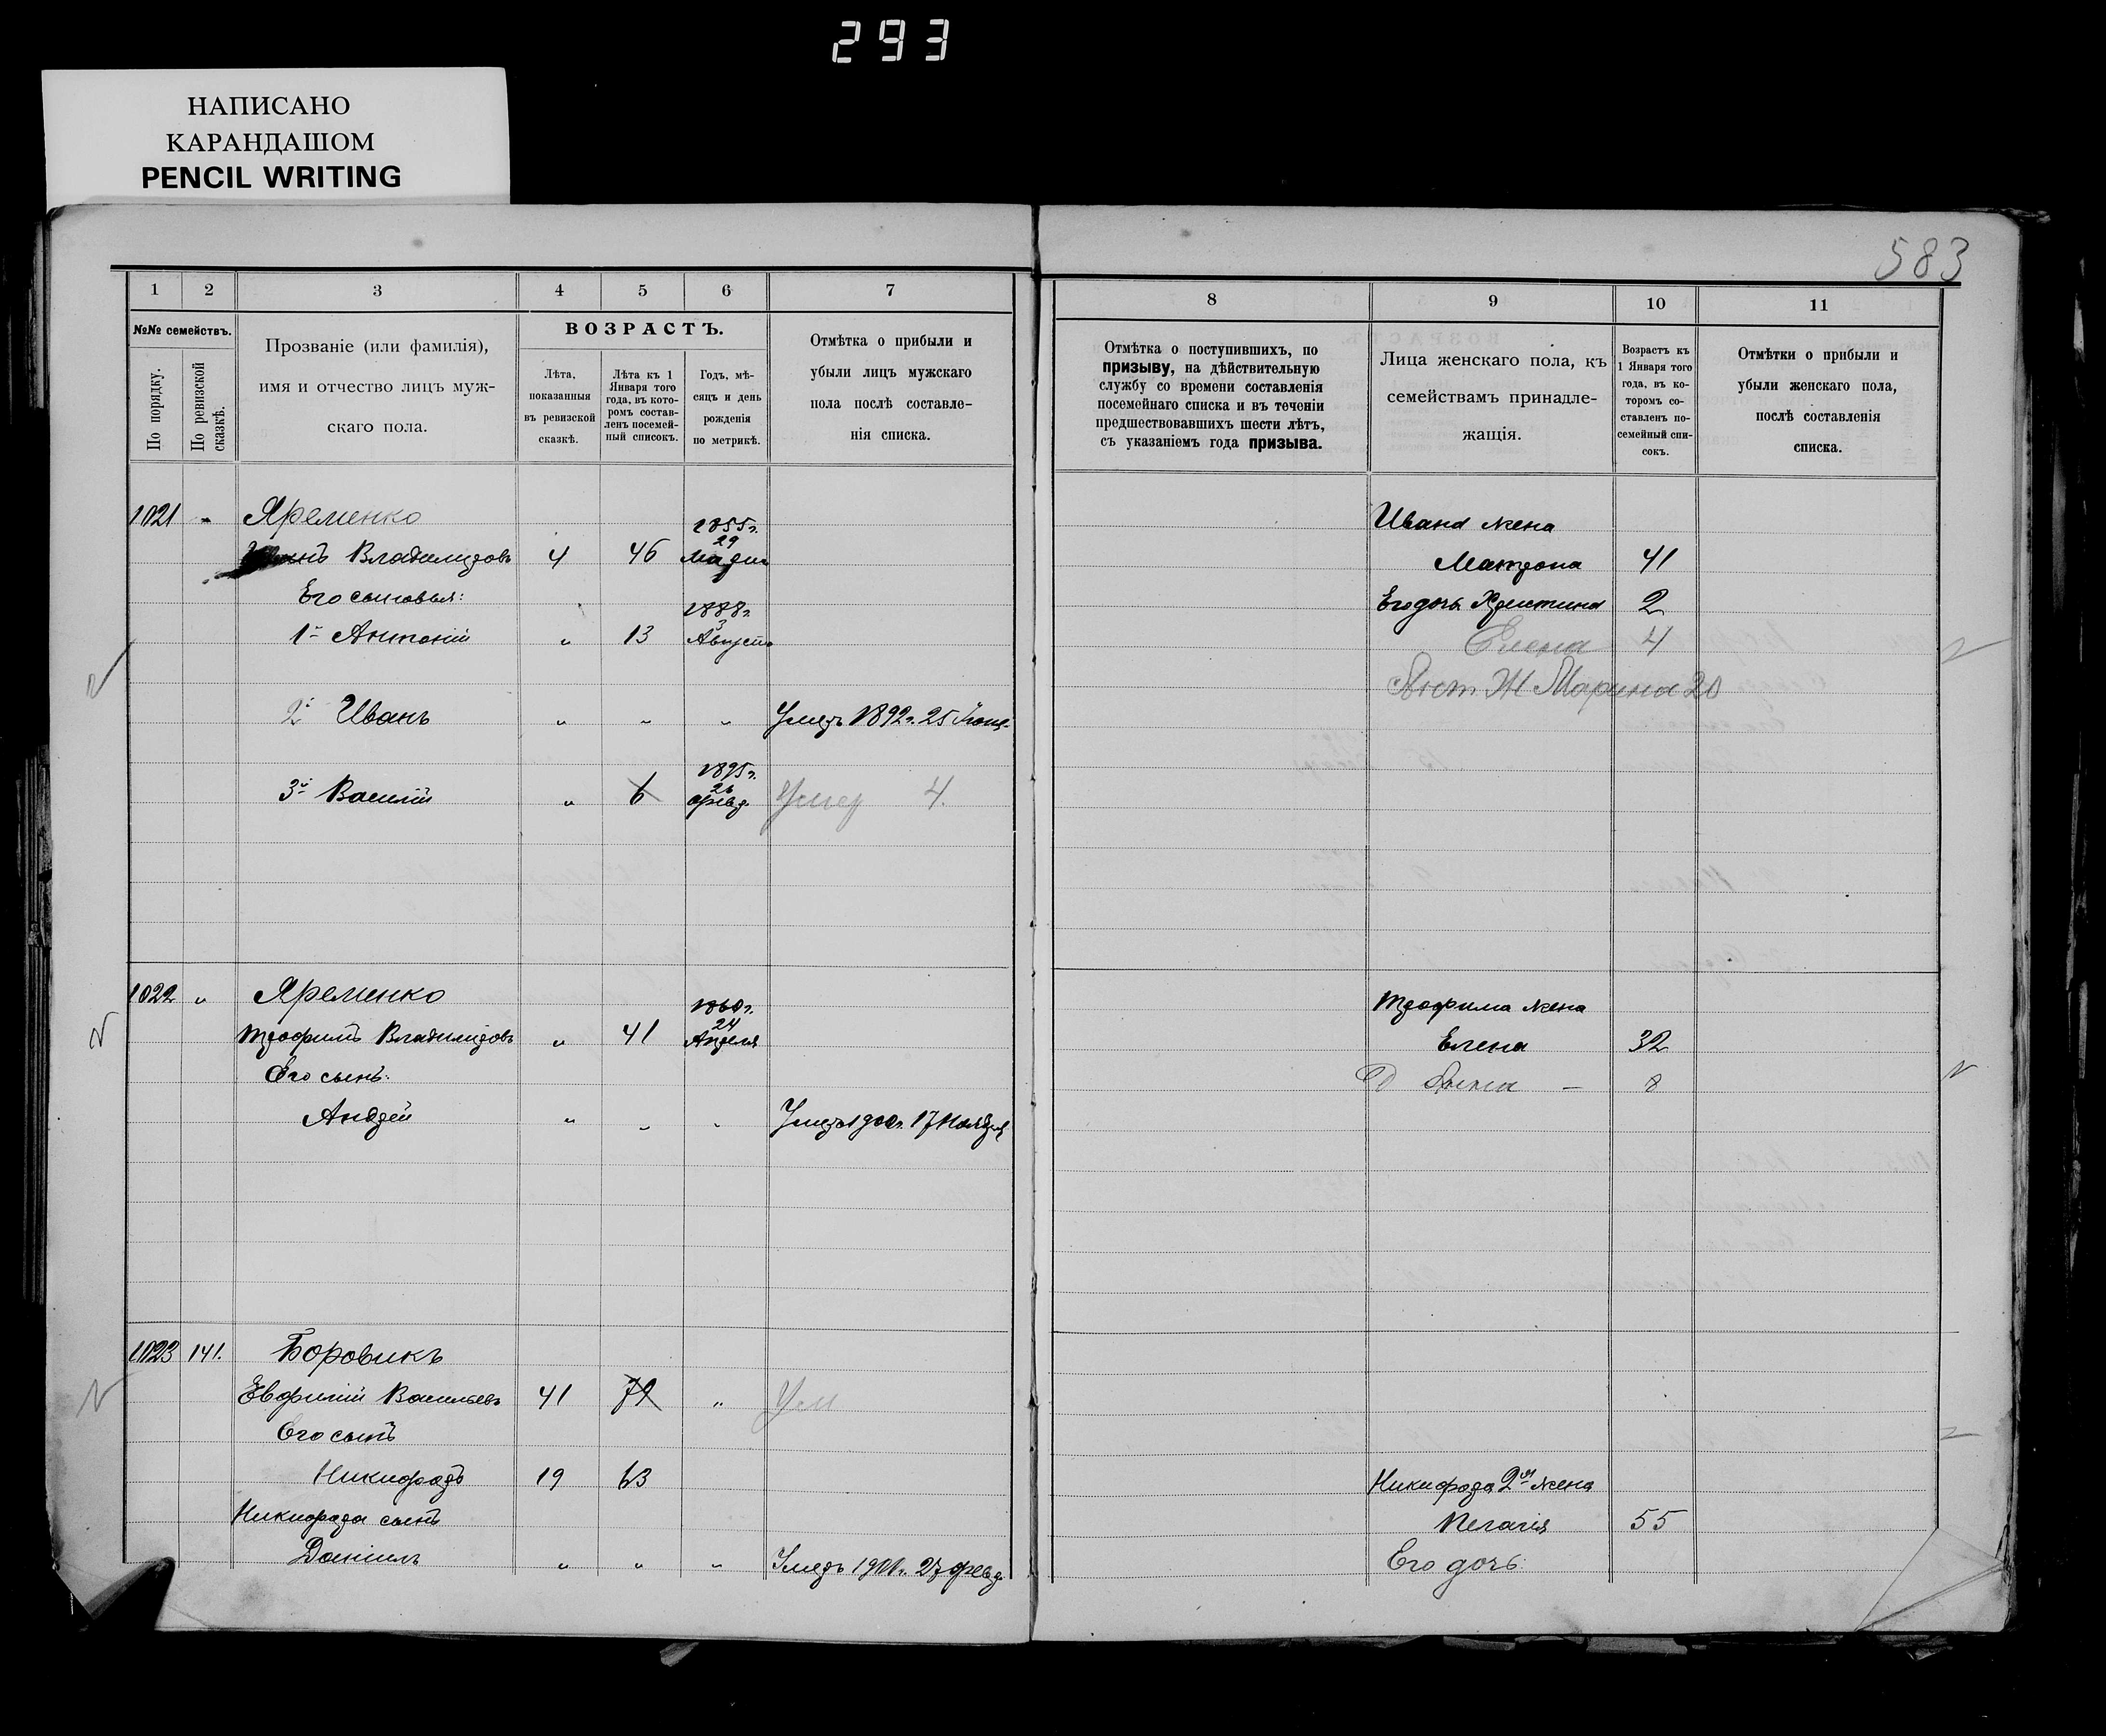 293
НАПИСАНО
КАРАНДАШОМ
PENCIL WRITING
583
1 2 3 4 5 6 7
№№ семействъ.
По порядку.
По ревизской сказкѣ.
Прозваніе (или фамилія),
имя и отчество лицъ муж-
скаго пола.
ВОЗРАСТЪ.
Лѣта,
показанныя
въ ревизской
сказкѣ.
Лѣта къ 1
Января того
года, въ кото-
ромъ состав-
ленъ посемей-
ный списокъ.
Годъ, мѣ-
сяцъ и день
рожденія
по метрикѣ.
Отмѣтка о прибыли и
убыли лицъ мужскаго
пола послѣ составле-
нія списка.
1021 Яременко
1855г.
29
Владиміровъ 4 46
Его сыновья:
1888г.
3
1й Антоній " 13 Августа
2й Иванъ " " " Умеръ 1892г. 25
1895г.
26
3й Василій " 6 февр. Умер 4.
1022 " Яременко
1860г.
24
Трофимъ Владиміровъ " 41 Апреля
Его сынъ:
Андрей " " " Умеръ 1900г. 17 Ноября
1023 141. Боровикъ
Евфимій Васильевъ 41 79 " Ум
Его сынъ
Никифоръ 19 63
Никифора сынъ
Даніилъ " " " Умеръ 1901г. 27 февр.
8 9 10 11
Отмѣтка о поступившихъ, по
призыву, на дѣйствительную
службу со времени составленія
посемейнаго списка и въ теченіи
предшествовавшихъ шести лѣтъ,
съ указаніемъ года призыва.
Лица женскаго пола, къ
семействамъ принадле-
жащія.
Возрастъ къ
1 Января того
года, въ ко-
торомъ со-
ставленъ по-
семейный спи-
сокъ.
Отмѣтки о прибыли и
убыли женскаго пола,
послѣ составленія
списка.
Ивана жена
Матрона 41
Его дочь Христина 2
Елена 4
Ант Ж Марина 20
Трофима жена
Елена 32
Д Анна — 8
Никифора 2я жена
Пелагія 55
Его дочь: